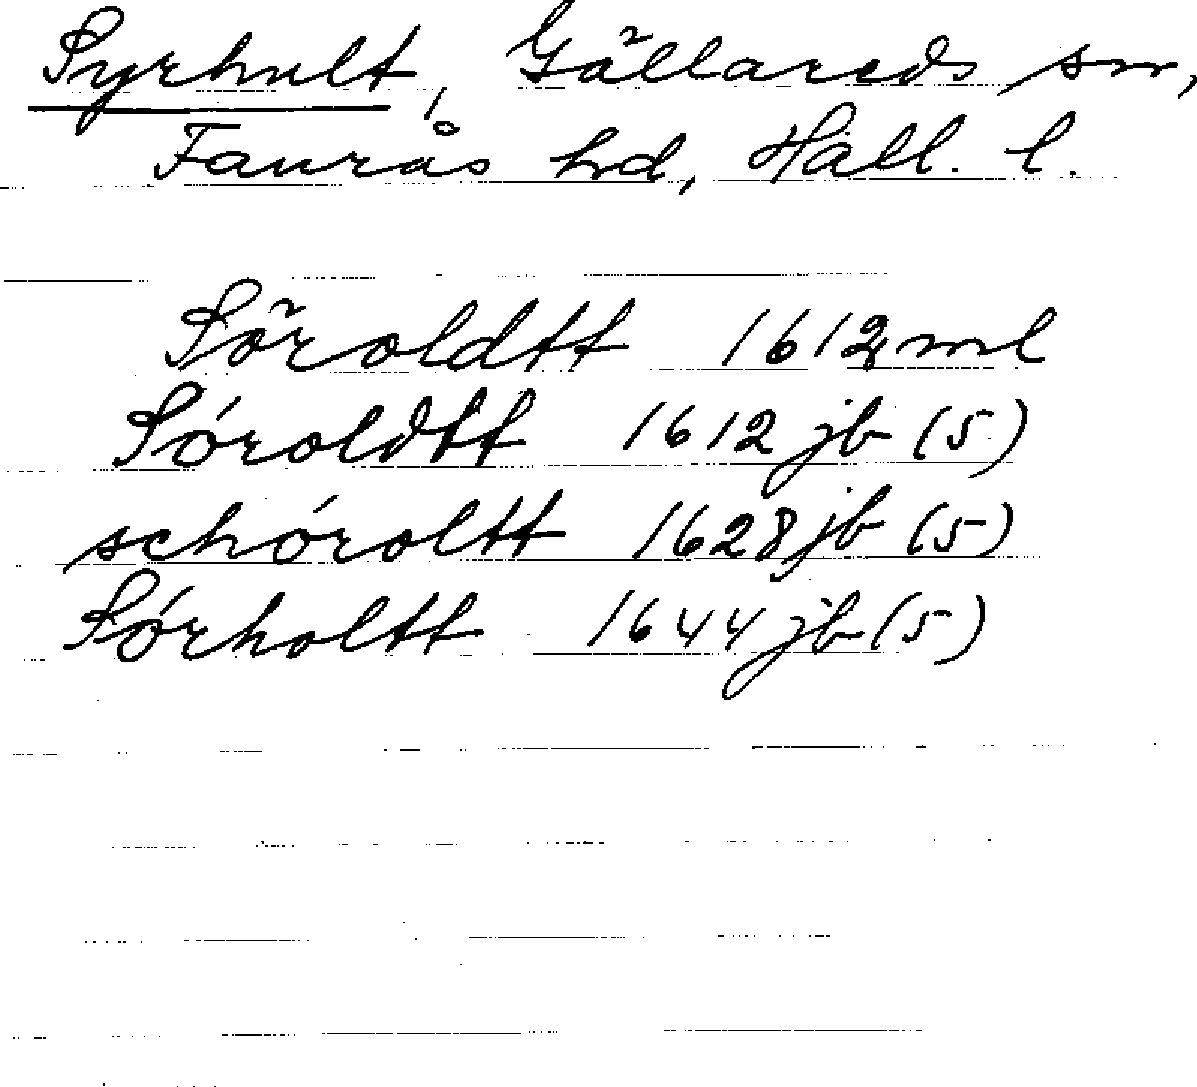 Syrhult, Gällareds sn,
Faurås hd, Hall. l.
Söroldtt 1612 ml
Sóroldtt 1612 jb (5)
schóroltt 1628 jb (5)
Sórholtt 1644 jb (5)